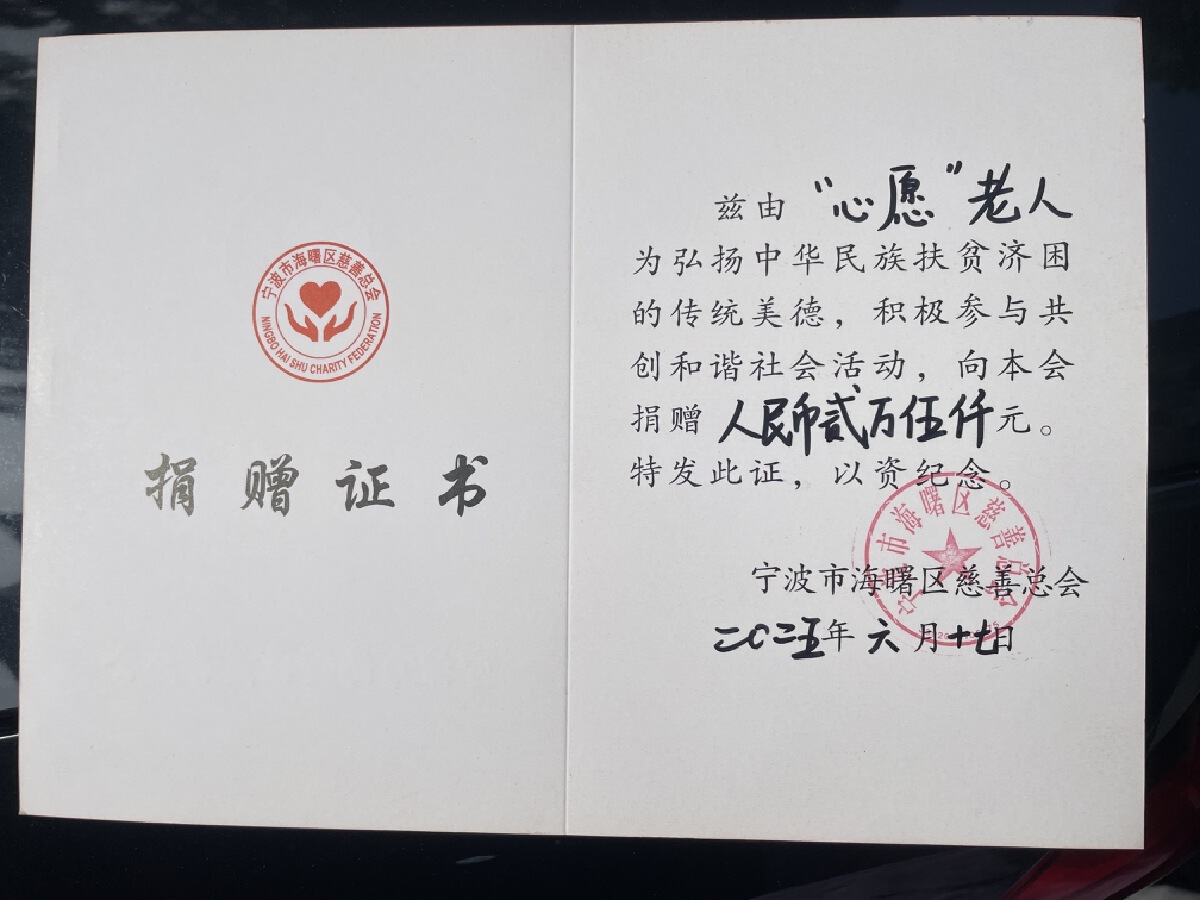 宁波市海曙区慈善总会
NINGBO HAI SHU CHARITY FEDERATION
捐赠证书
兹由“心愿”老人
为弘扬中华民族扶贫济困
的传统美德，积极参与共
创和谐社会活动，向本会
捐赠人民币贰万伍仟元。
特发此证，以资纪念。
宁波市海曙区慈善总会
宁波市海曙区慈善总会
二〇二五年六月十七日